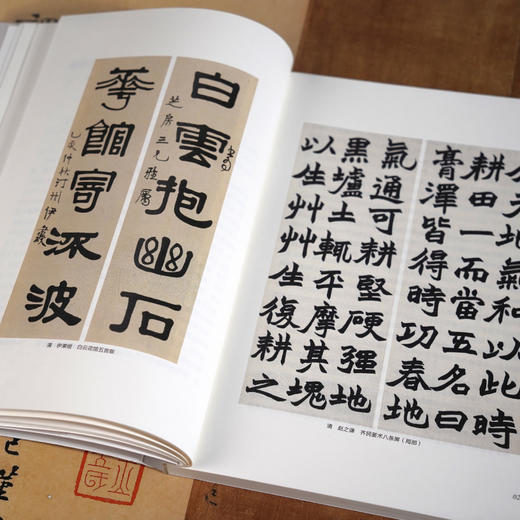 白雲抱幽石
芝房三兄雅屬
華館寄流波
乙亥仲秋汀州伊秉綬
清 伊秉绶 白云花馆五言联
氣和以此時
耕田一而當五名曰
膏澤皆得時功春地
氣通可耕堅硬彊地
黑壚土輒平摩其塊
以生艸艸生復耕之
清 赵之谦 齐民要术八条屏（局部）